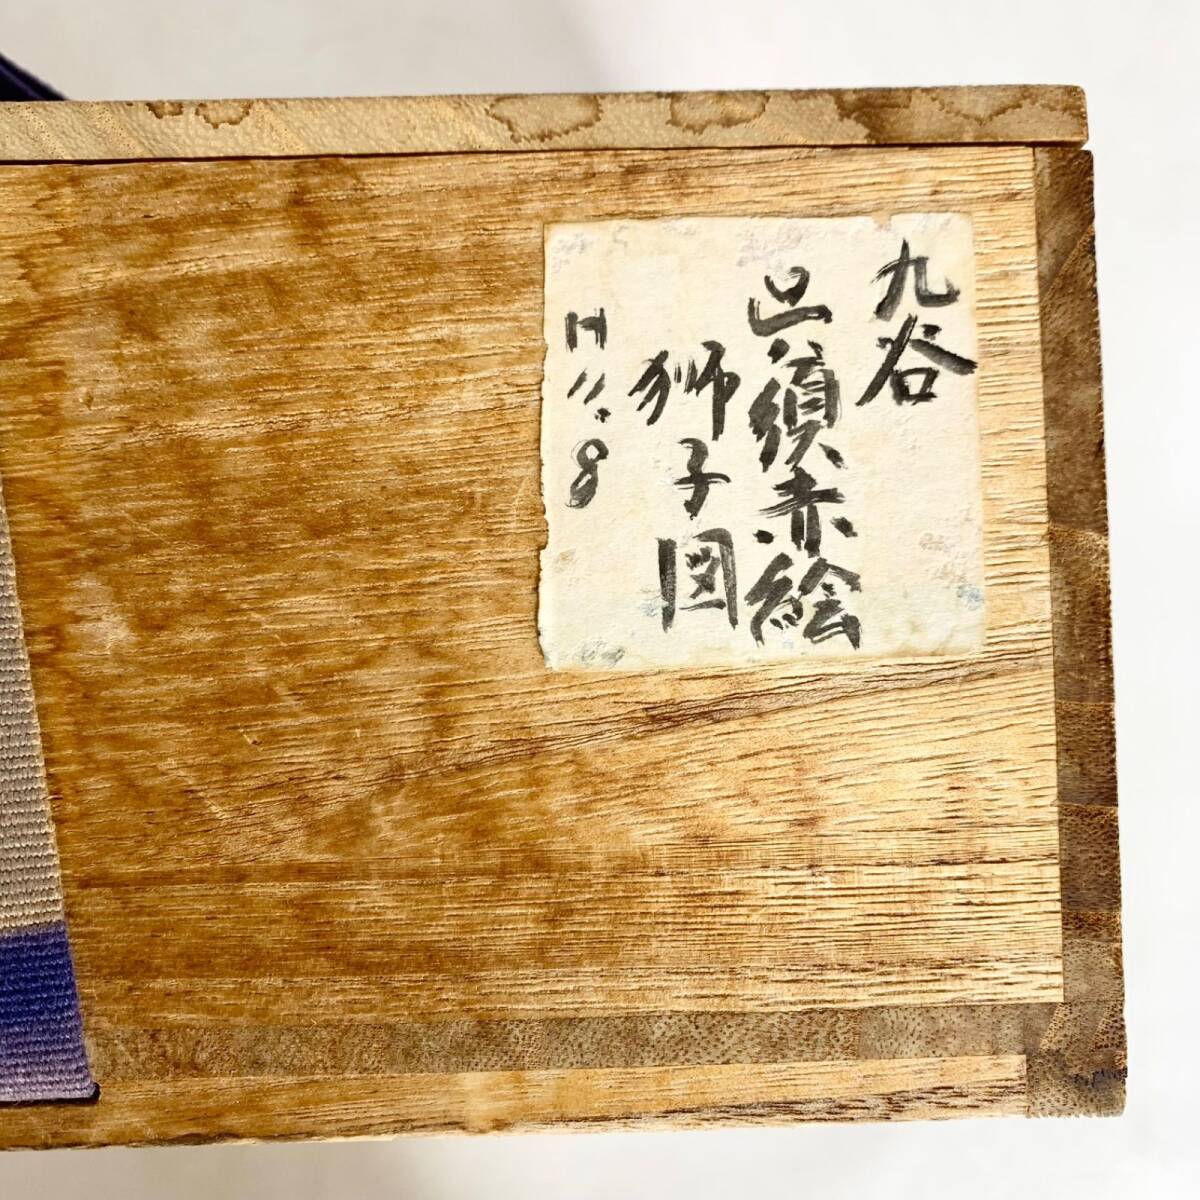 九谷
呉須赤絵
獅子図
H11.8